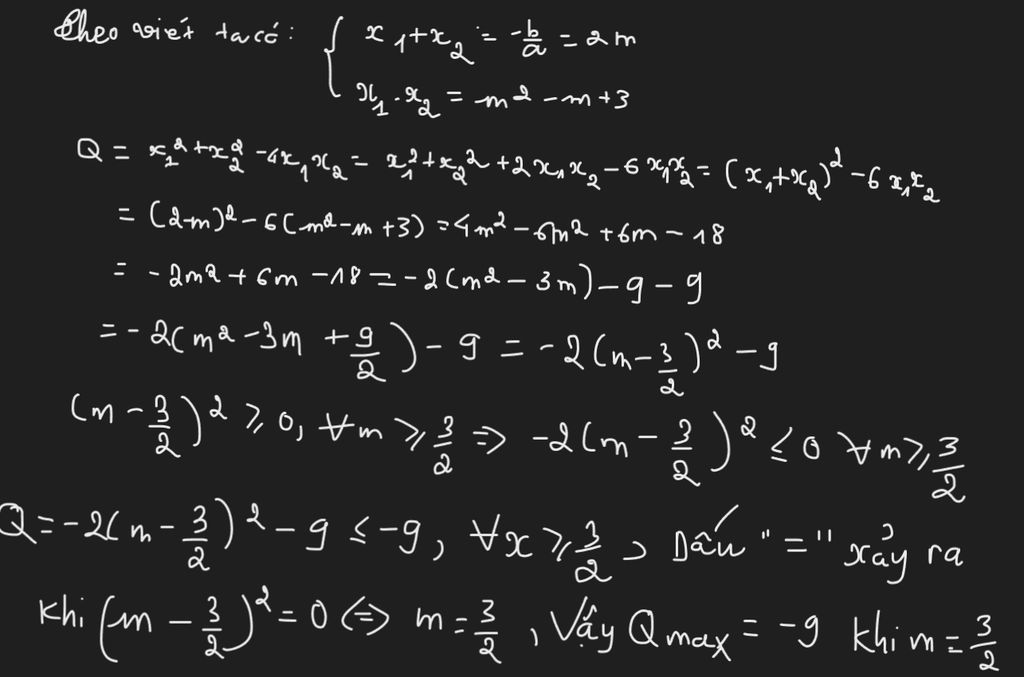 Theo viét ta có: { x₁+x₂ = -b/a = 2m
x₁.x₂ = m² - m + 3
Q = x₁² + x₂² - 4x₁x₂ = x₁² + x₂² + 2x₁x₂ - 6x₁x₂ = (x₁+x₂)² - 6x₁x₂
= (2m)² - 6(m² - m + 3) = 4m² - 6m² + 6m - 18
= -2m² + 6m - 18 = -2(m² - 3m) - 9 - 9
= -2(m² - 3m + 9/2) - 9 = -2(m - 3/2)² - 9
(m - 3/2)² ⩾ 0, ∀m ⩾ 3/2 => -2(m - 3/2)² ≤ 0 ∀m ⩾ 3/2
Q = -2(m - 3/2)² - 9 ≤ -9, ∀x ⩾ 3/2, Dấu "=" xảy ra
khi (m - 3/2)² = 0 <=> m = 3/2, Vậy Qmax = -9 khi m = 3/2